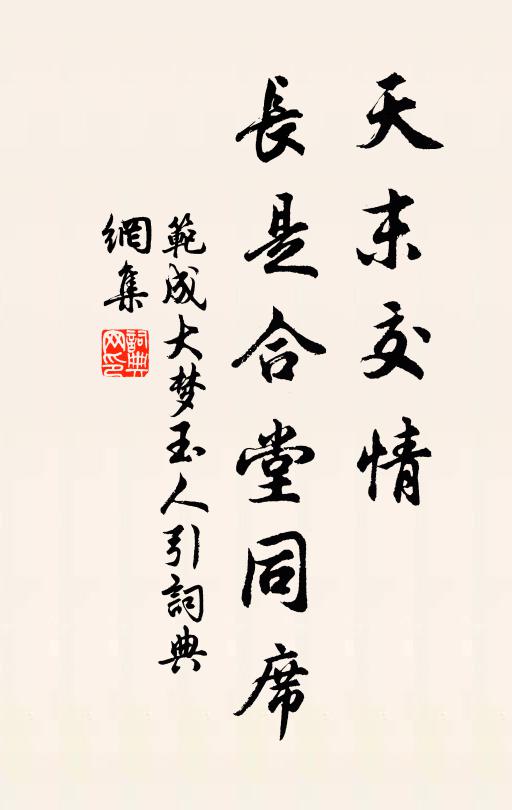 天末交情
長是合堂同席
範成大梦玉人引詞典
網集
詞典
网印